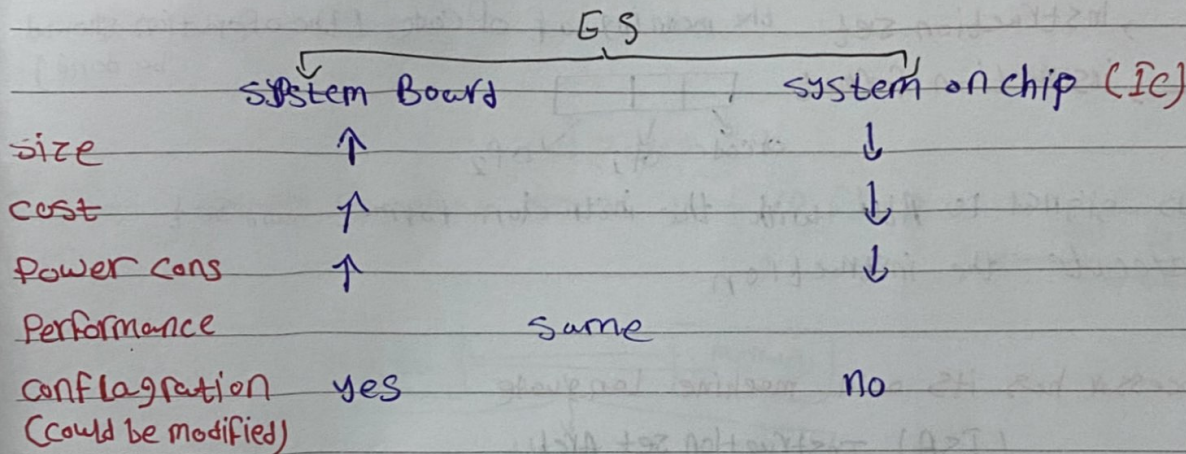 ES
system Board system on chip (Ic)
size ↑ ↓
cost ↑ ↓
Power cons ↑ ↓
Performance same
conflagration yes no
(could be modified)